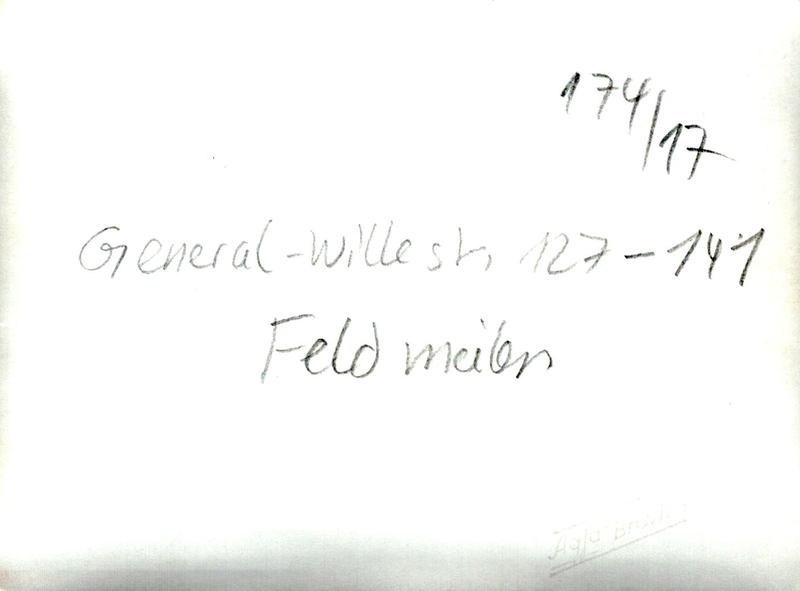 174/17
General-Willestr. 127 – 141
Feldmeilen
Agfa